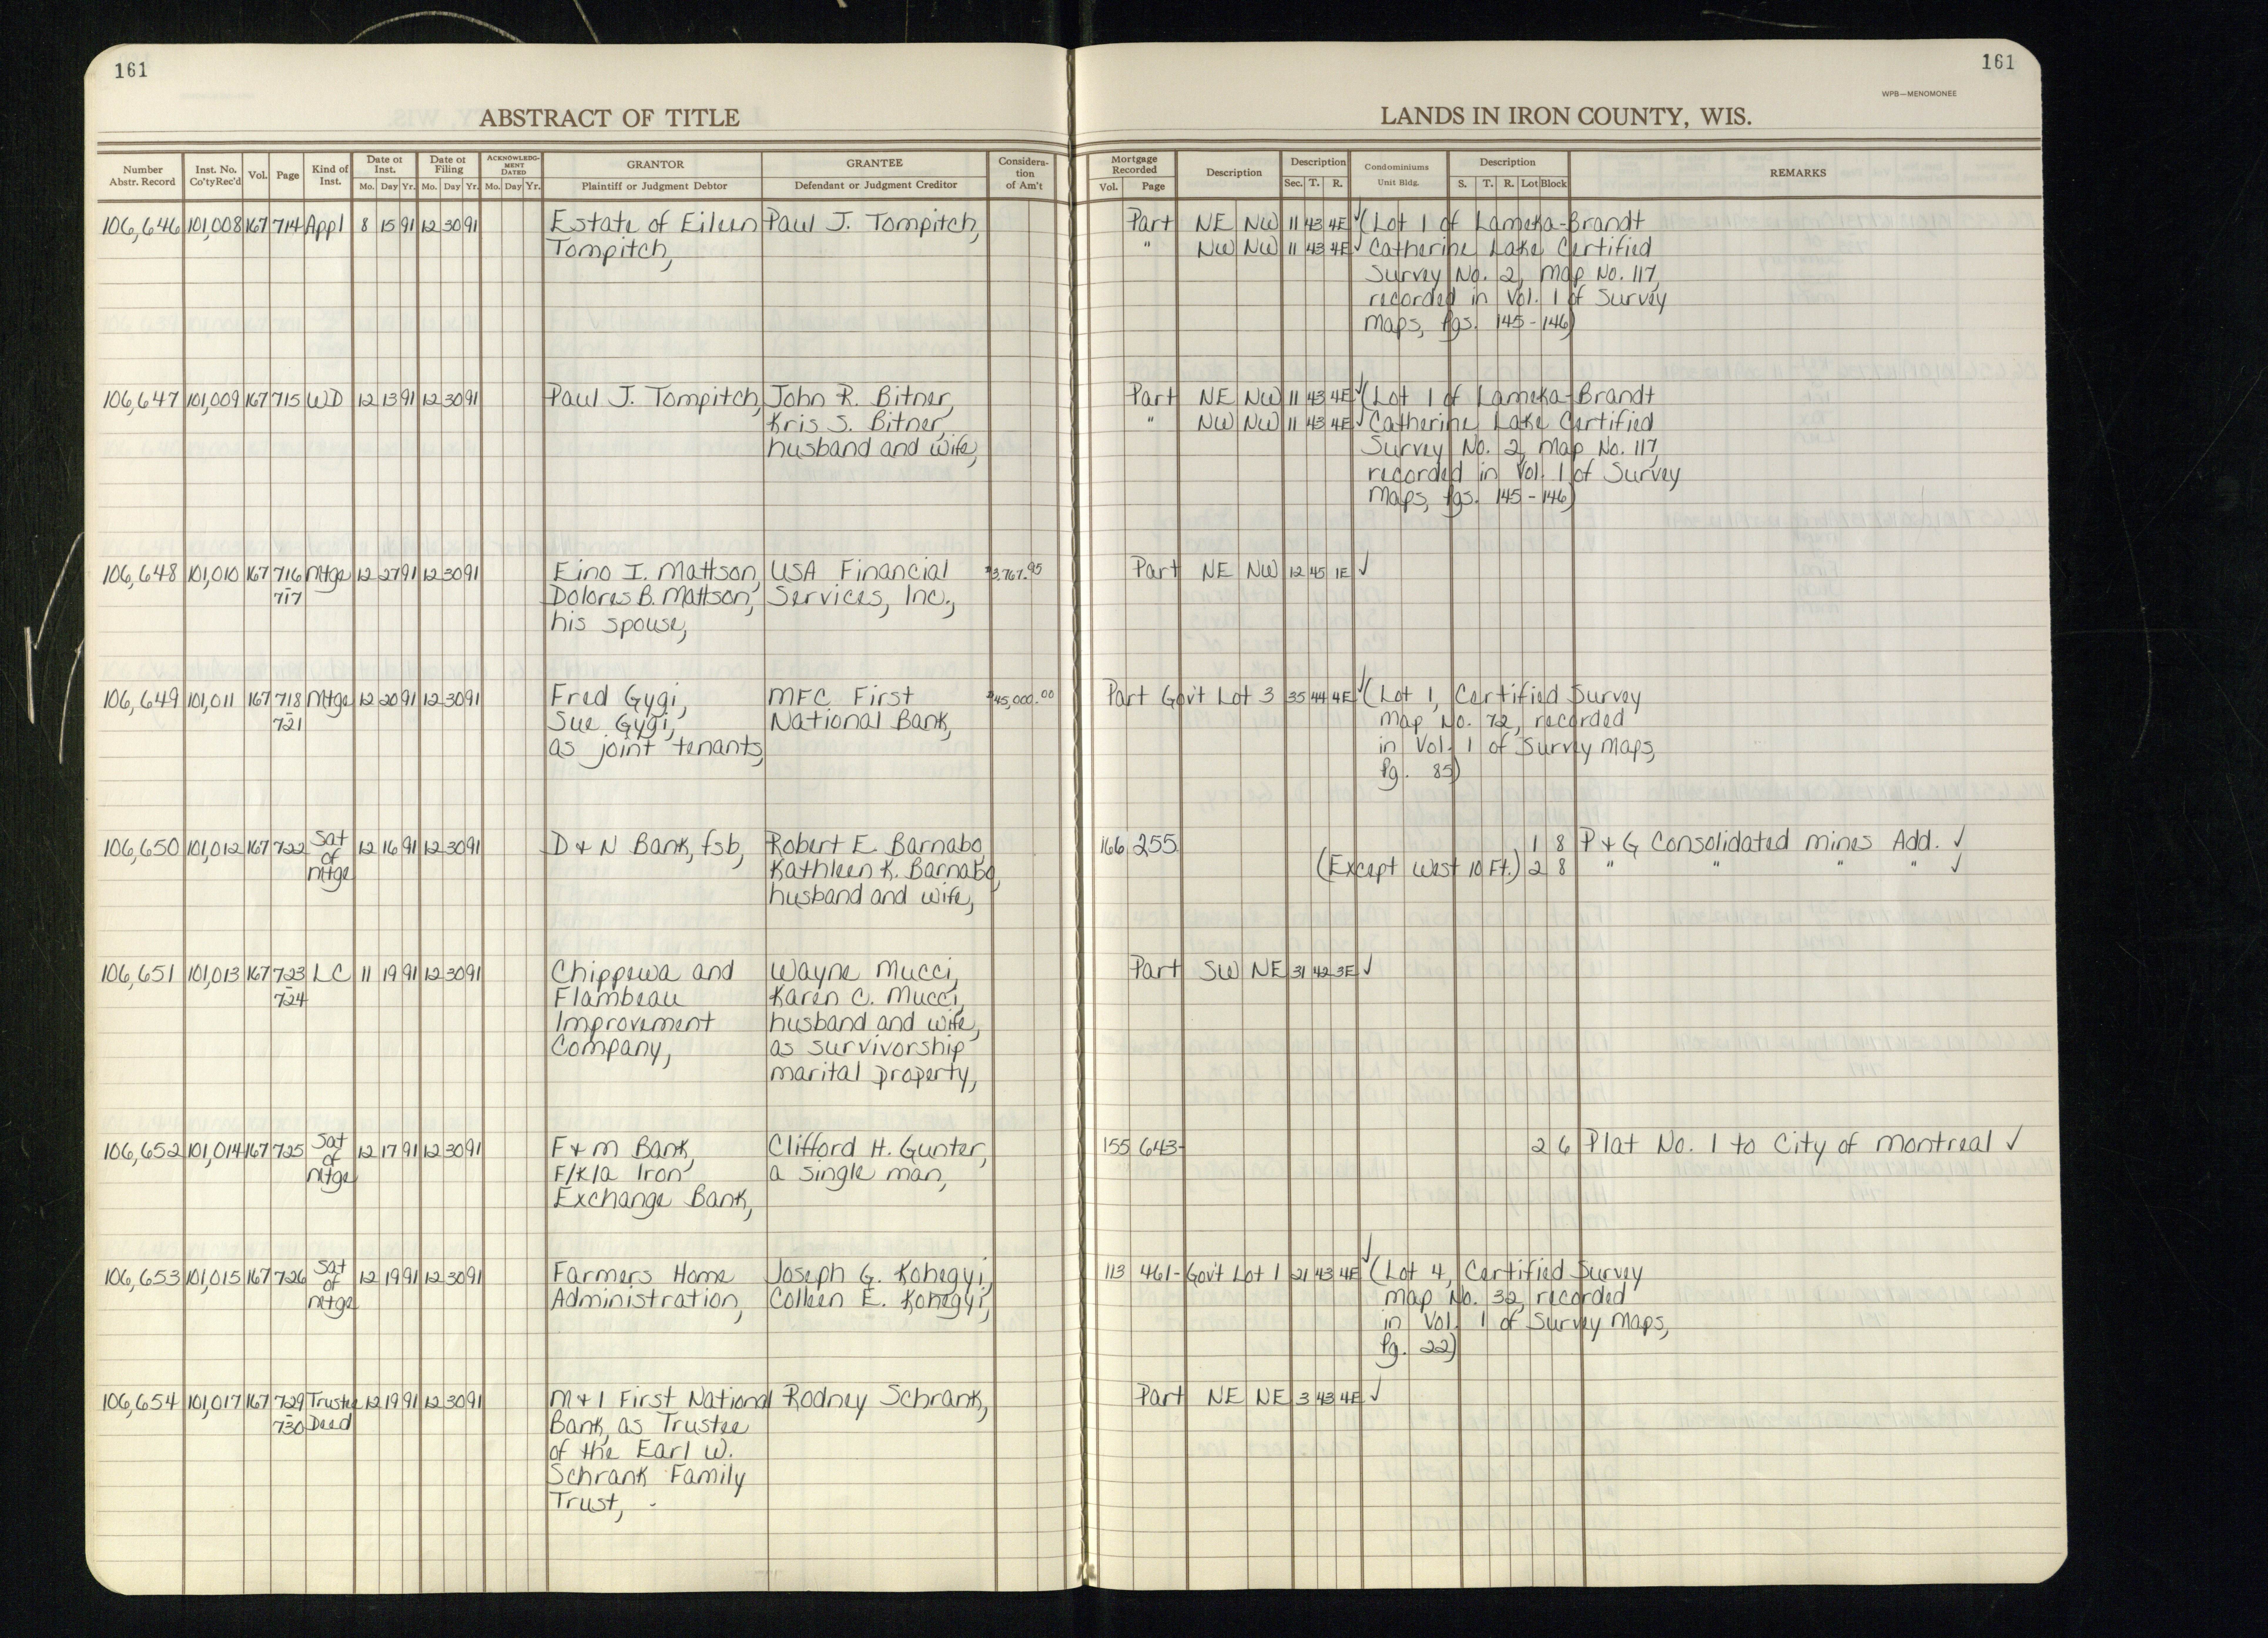 161
161
WPB—MENOMONEE
ABSTRACT OF TITLE
LANDS IN IRON COUNTY, WIS.
Number Abstr. Record | Inst. No. Co'ty Rec'd | Vol. | Page | Kind of Inst. | Date of Inst. Mo. Day Yr. | Date of Filing Mo. Day Yr. | ACKNOWLEDGMENT DATED Mo. Day Yr. | GRANTOR Plaintiff or Judgment Debtor | GRANTEE Defendant or Judgment Creditor | Consideration of Am't | Mortgage Recorded Vol. Page | Description | Description Sec. T. R. | Condominiums Unit Bldg. | Description S. T. R. Lot Block | REMARKS
106,646 101,008 167 714 Appl 8 15 91 12 30 91 Estate of Eileen Paul J. Tompitch, Part NE NW 11 43 4E ✓ (Lot 1 of Lameka-Brandt
Tompitch, " NW NW 11 43 4E ✓ Catherine Lake Certified
Survey No. 2, Map No. 117,
recorded in Vol. 1 of Survey
Maps, Pgs. 145-146)
106,647 101,009 167 715 WD 12 13 91 12 30 91 Paul J. Tompitch, John R. Bitner, Part NE NW 11 43 4E ✓ (Lot 1 of Lameka-Brandt
Kris S. Bitner, " NW NW 11 43 4E ✓ Catherine Lake Certified
husband and wife, Survey No. 2, Map No. 117,
recorded in Vol. 1 of Survey
Maps, Pgs. 145-146)
106,648 101,010 167 716 Mtge 12 27 91 12 30 91 Eino I. Mattson, USA Financial $3,767.95 Part NE NW 12 45 1E ✓
-717 Dolores B. Mattson, Services, Inc.,
his spouse,
106,649 101,011 167 718 Mtge 12 20 91 12 30 91 Fred Gygi, MFC First $45,000.00 Part Gov't Lot 3 35 44 4E ✓ (Lot 1, Certified Survey
-721 Sue Gygi, National Bank, Map No. 72, recorded
as joint tenants, in Vol. 1 of Survey Maps,
Pg. 85)
106,650 101,012 167 722 Sat of Mtge 12 16 91 12 30 91 D & N Bank, fsb, Robert E. Barnabo, 166 255 1 8 P & G Consolidated Mines Add. ✓
Kathleen K. Barnabo, (Except West 10 Ft.) 2 8 " " " " ✓
husband and wife,
106,651 101,013 167 723 LC 11 19 91 12 30 91 Chippewa and Wayne Mucci, Part SW NE 31 42 3E ✓
-724 Flambeau Karen C. Mucci,
Improvement husband and wife,
Company, as survivorship
marital property,
106,652 101,014 167 725 Sat of Mtge 12 17 91 12 30 91 F & M Bank, Clifford H. Gunter, 155 643- 2 6 Plat No. 1 to City of Montreal ✓
F/K/a Iron a single man,
Exchange Bank,
106,653 101,015 167 726 Sat of Mtge 12 19 91 12 30 91 Farmers Home Joseph G. Kohegyi, 113 461- Gov't Lot 1 21 43 4E ✓ (Lot 4, Certified Survey
Administration, Colleen E. Kohegyi, Map No. 32, recorded
in Vol. 1 of Survey Maps,
Pg. 22)
106,654 101,017 167 729 Trustee 12 19 91 12 30 91 M & I First National Rodney Schrank, Part NE NE 3 43 4E ✓
-730 Deed Bank, as Trustee
of the Earl W.
Schrank Family
Trust,